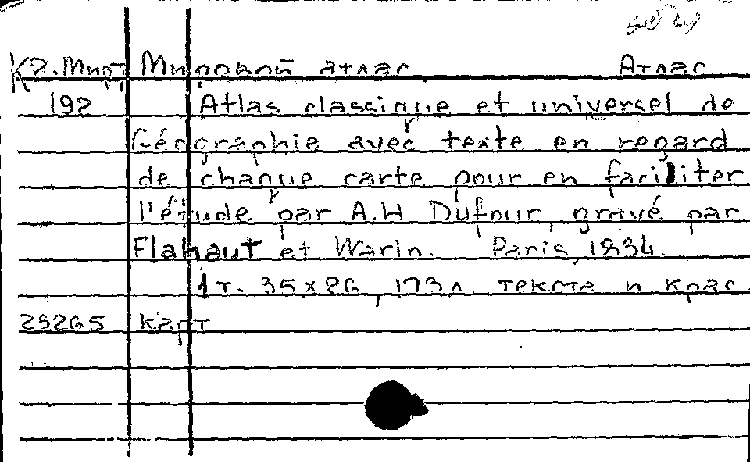 К2.Мирт Мировой атлас Атлас
192 Atlas classique et universel de
Géographie avec texte en regard
de chaque carte pour en faciliter
l'étude par A.H Dufour, gravé par
Flahaut et Warin. Paris, 1834.
1 т. 35x26, 173 л текста и крас
29265 карт